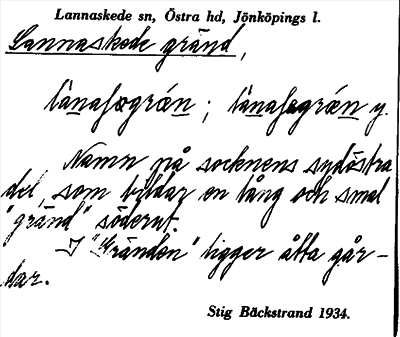 Lannaskede sn, Östra hd, Jönköpings l.
Lannaskede gränd,
; y.
Namn på socknens sydöstra
del, som bildar en lång och smal
"gränd" söderut.
I "Gränden" ligger åtta går-
dar.
Stig Bäckstrand 1934.